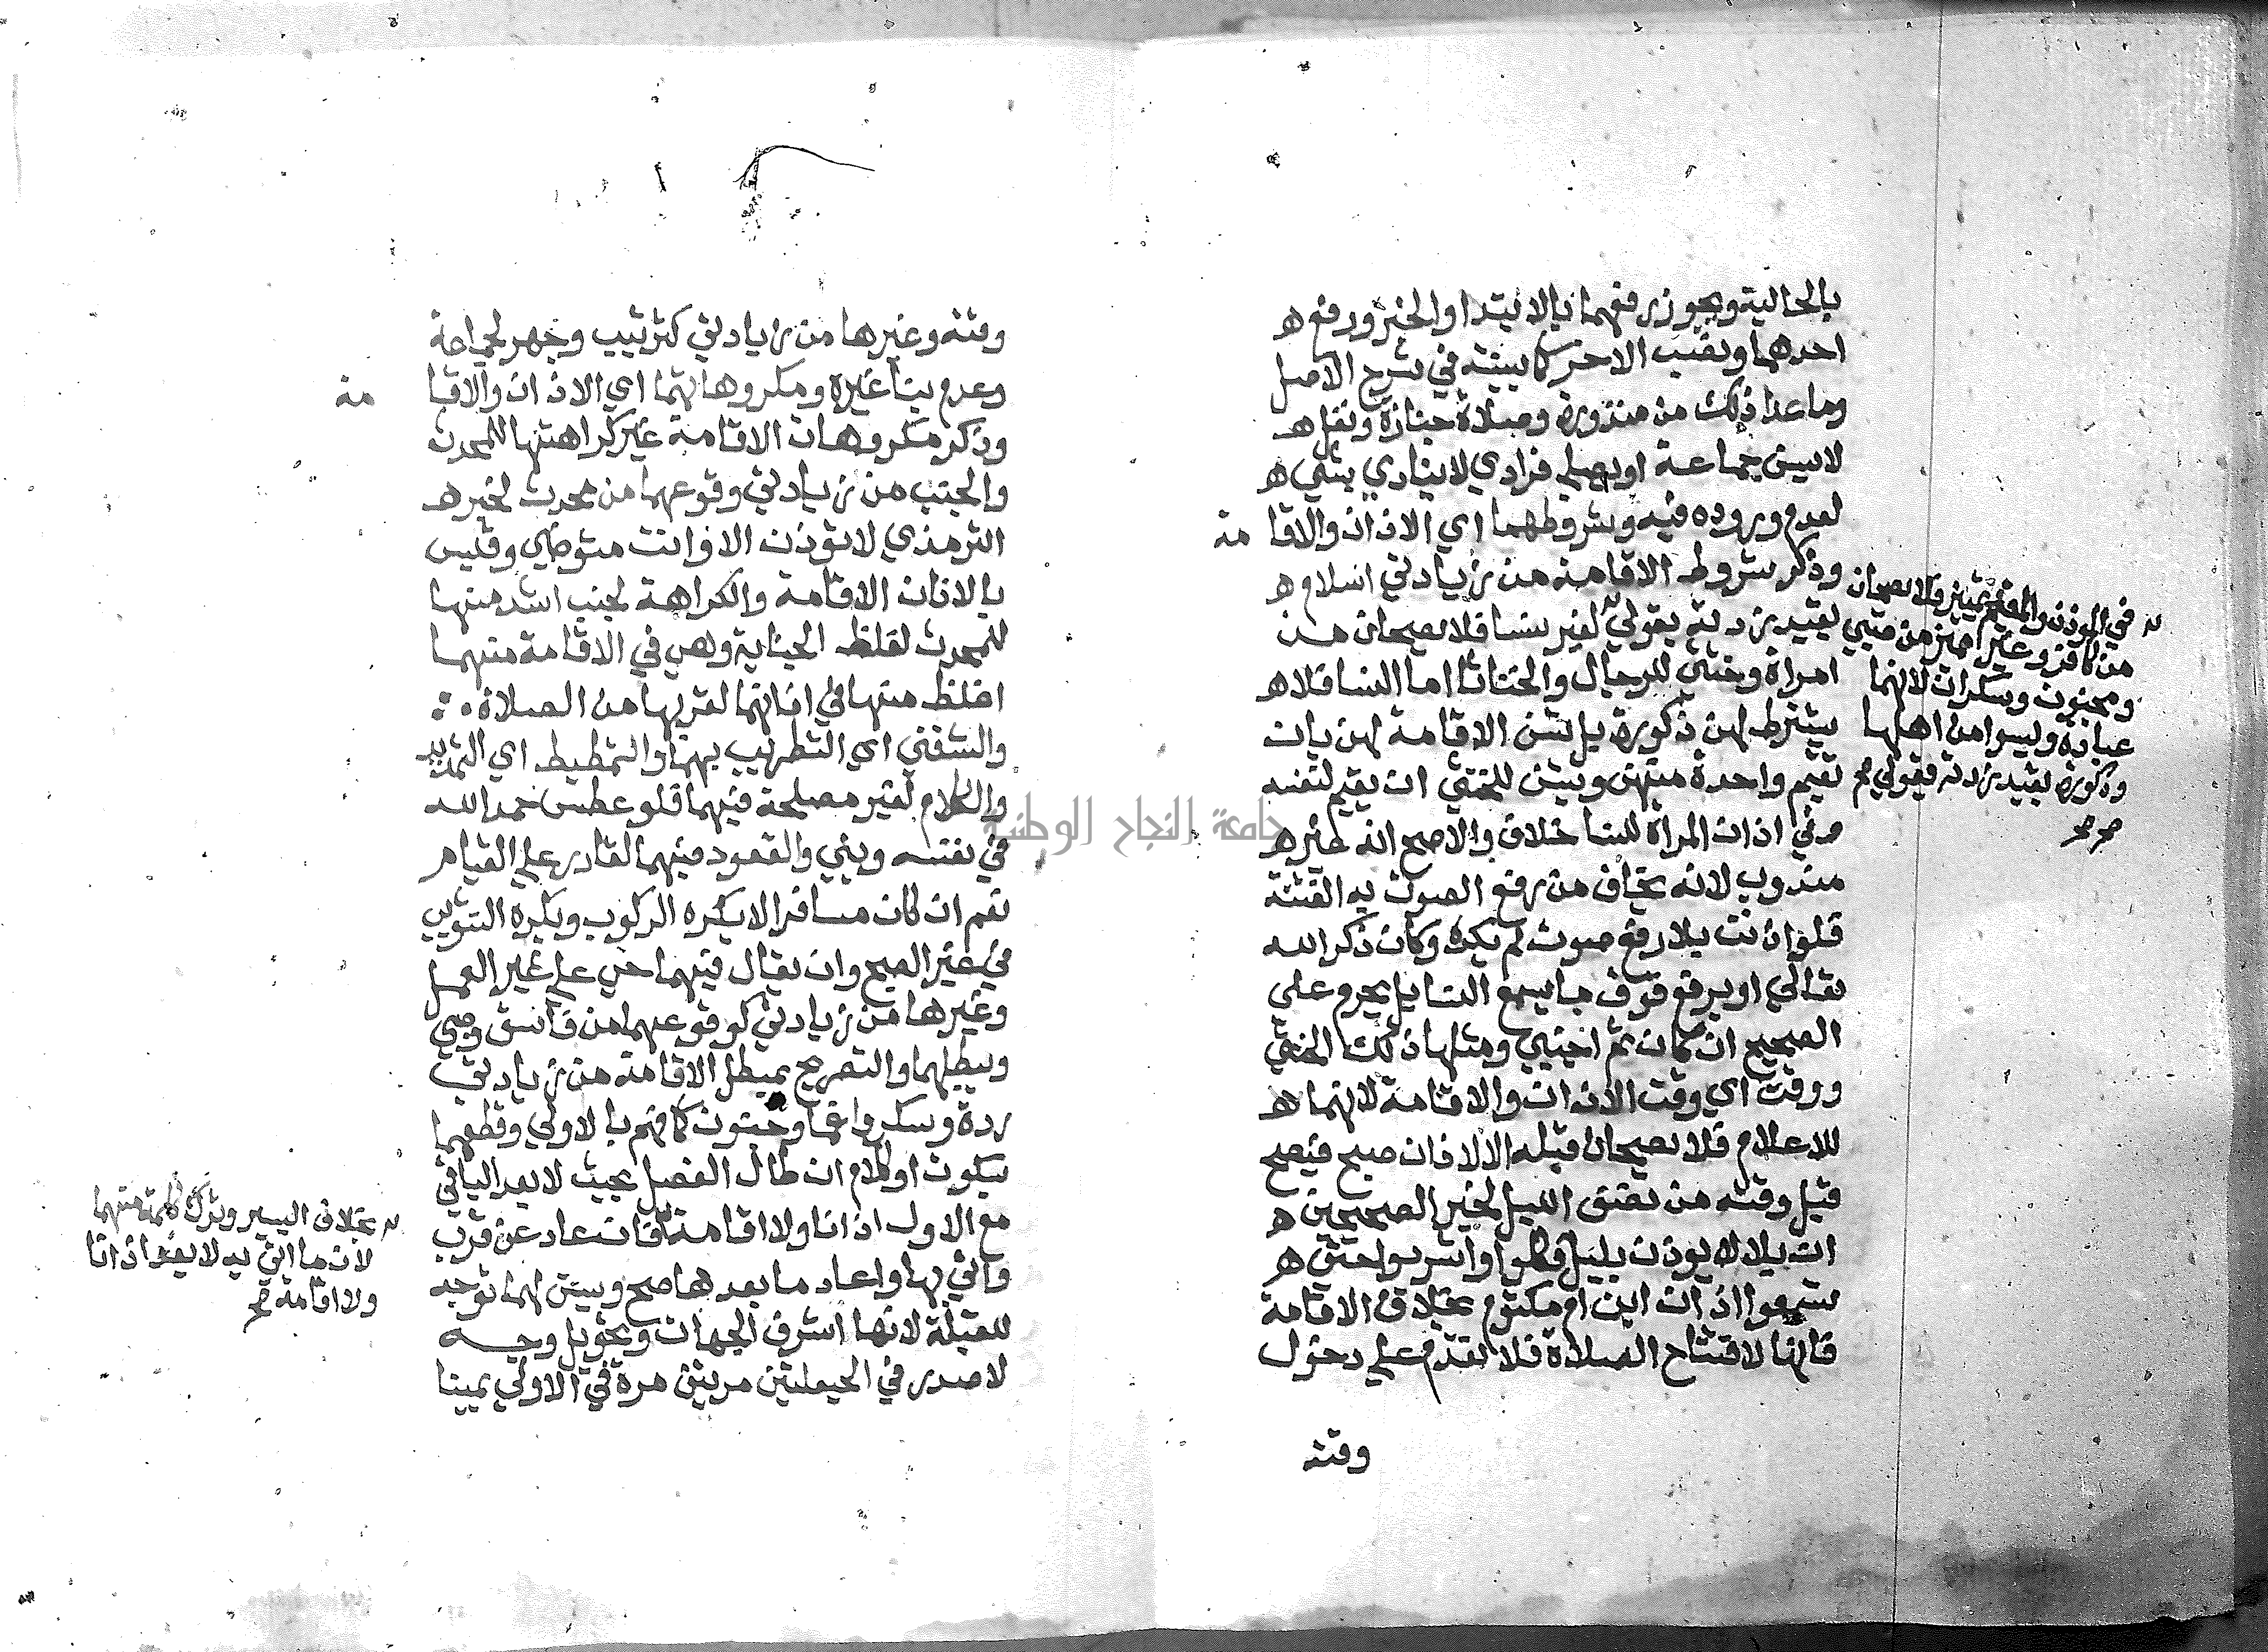 بالحالية ويجوز رفعهما بالابتدا والخبر ورفع
احدهما ونصب الاخر كما بينته في شرح الاصل
وما عدا ذلك من منذورة وصلاة جنازة ونفل
لا يسن جماعة او يصلي فرادي لا ينادي بشي
لعدم وروده فيه وشروطهما اي الاذان والاقا مة
وذكر شروط الاقامة من زيادتي اسلام
لقيد زدته بقولي لغير نسا فلا يصحان من
امراة وخنثي للرجال والخناثا اما النسا فلا
يشترط لهن ذكورة بل تسن الاقامة لهن بان
تقيم واحدة منهن ويسن للخنثي ان يقيم لنفسه
وفي اذان المراة للنسا خلاف والاصح انه غير
مندوب لانه يخاف من رفع الصوت به الفتنة
فلو اذنت بلا رفع صوت لم يكره وكان ذكر الله
تعالي او برفع فوق ما يسمع النسا بل يحرم علي
الصحيح ان كان ثم اجنبي ومثلها في ذلك الخنثي
ووقت اي وقت الاذان والاقامة لانهما
للاعلام فلا يصحان قبله الا الاذان صبح فيصح
قبل وقته من نصف الليل لخبر الصحيحين
ان بلالا يوذن بليل فكلوا واشربوا حتي
تسمعوا اذان ابن ام مكتوم بخلاف الاقامة
فانها لافتتاح الصلاة فلا تقدم علي دخول
وقته
في الموذن والمقيم تمييز فلا يصحان
من كافر وغير مميز من صبي
ومجنون وسكران لانهما
عبادة وليسوا من اهلها
وذكورة لقيد زدته بقولي صح
صح صح
وقته وغيرها من زيادتي كترتيب وجهر لجماعة
وعدم بنا غيره ومكروهاتهما اي الاذان والاقا مة
وذكر مكروهات الاقامة غير كراهتها للمحدث
والجنب من زيادتي وقوعهما من محدث لخبر
الترمذي لا تؤذن الا وانت متوضي وقيس
بالاذان الاقامة والكراهة لجنب اشد منها
للمحدث لغلظ الجنابة وهي في الاقامة منهما
اغلظ منها في اذانهما لقربها من الصلاة
والتغني اي التطريب بهما والتمطيط اي التمديد
والكلام لغير مصلحة فيهما فلو عطس حمد الله
في نفسه ويبني والقعود فيهما لقادر علي القيام
نعم ان كان مسافرا لا يكره الركوب ويكره التثويب
في غير الصبح وان يقال فيهما حي علي خير العمل
وغيرها من زيادتي كوقوعهما من فاسق وصبي
ويبطلهما والتصريح بمبطل الاقامة من زيادتي
ردة وسكر واغما وجنون كما فهم بالاولي وقطعهما
بسكوت او كلام ان طال الفصل بحيث لا يعد الباقي
مع الاول اذانا ولا اقامة فان عاد عن قرب
واتي بها واعاد ما بعدها صح ويسن لهما توجه
للقبلة لانها اشرف الجهات وتحويل وجه
لا صدر في الحيعلتين مرتين مرة في الاولي يمينا
بخلاف اليسير وترك كلمة منهما
لان ما اتي به لا يعد اذانا
ولا اقامة صح
جامعة النجاح الوطنية